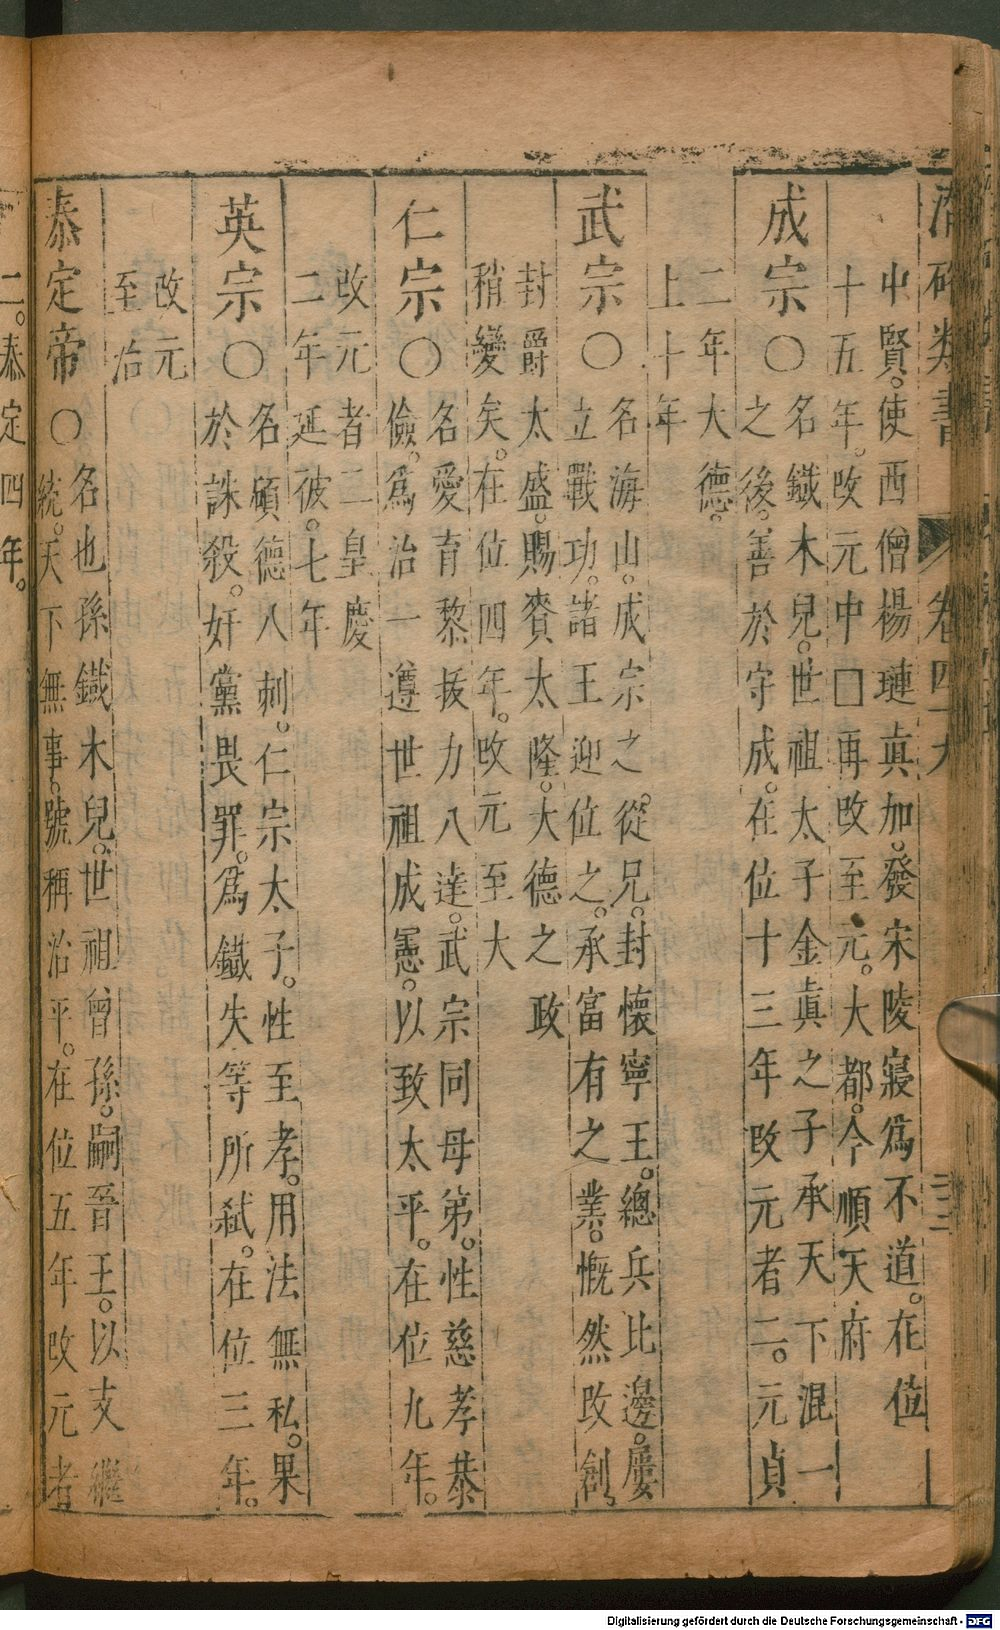 潛確類書 卷四十九
中賢。使西僧楊璉真加。發宋陵寢爲不道。在位
十五年。改元中□再改至元。大都。今順天府
成宗○名鐵木兒。世祖太子金眞之子承天下混一
之後。善於守成。在位十三年改元者二。元貞
二年大德。
上十年
武宗○名海山。成宗之從兄。封懷寧王。總兵比邊。屢
立戰功。諸王迎位之。承富有之業。慨然改創。
封爵太盛。賜賚太隆。大德之政
稍變矣。在位四年。改元至大
仁宗○名愛育黎拔力八達。武宗同母弟。性慈孝恭
儉。爲治一遵世祖成憲。以致太平。在位九年。
改元者二皇慶
二年延彼。七年
英宗○名碩德八刺。仁宗太子。性至孝。用法無私。果
於誅殺。奸黨畏罪。爲鐵失等所弒。在位三年。
改元
至治
泰定帝○名也孫鐵木兒。世祖曾孫。嗣晉王。以支繼
統。天下無事。號稱治平。在位五年改元者
二。泰定四年。
Digitalisierung gefördert durch die Deutsche Forschungsgemeinschaft - DFG